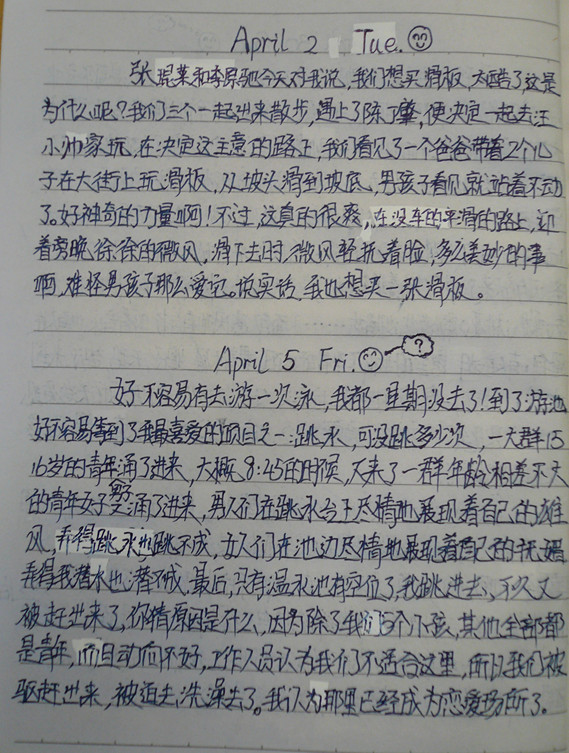 April 2 Tue.
张琨業和李原驰今天对我说，我们想买滑板，太酷了这是
为什么呢？我们三个一起出来散步，遇上了陈丁肇，便决定一起去汪
小帅家玩，在决定这主意的路上，我们看见了一个爸爸带着2个儿
子在大街上玩滑板，从坡头滑到坡底，男孩子看见就站着不动
了。好神奇的力量啊！不过，这真的很爽，在没车的平滑的路上，迎
着旁晚徐徐的微风，滑下去时，微风轻抚着脸，多么美妙的事
啊，难怪男孩子那么爱它。说实话，我也想买一张滑板。
April 5 Fri. ?
好不容易有去游一次泳，我都一星期没去了！到了游池
好不容易等到了我最喜爱的项目之一：跳水，可没跳多少次，一大群15
16岁的青年涌了进来，大概8:45的时候，又来了一群年龄相差不大
的青年女子又涌了进来，男人们在跳水台上尽情地展现着自己的雄
风，弄得跳水也跳不成，女人们在池边尽情地展现着自己的
弄得我潜水也潜不成，最后，只有温水池有空位了，我跳进去，不久又
被赶出来了，你猜原因是什么，因为除了我们5个小孩，其他全部都
是青年，而且动向不好，工作人员认为我们不适合这里，所以我们被
驱赶出来，被迫去洗澡去了。我认为那里已经成为恋爱场所了。